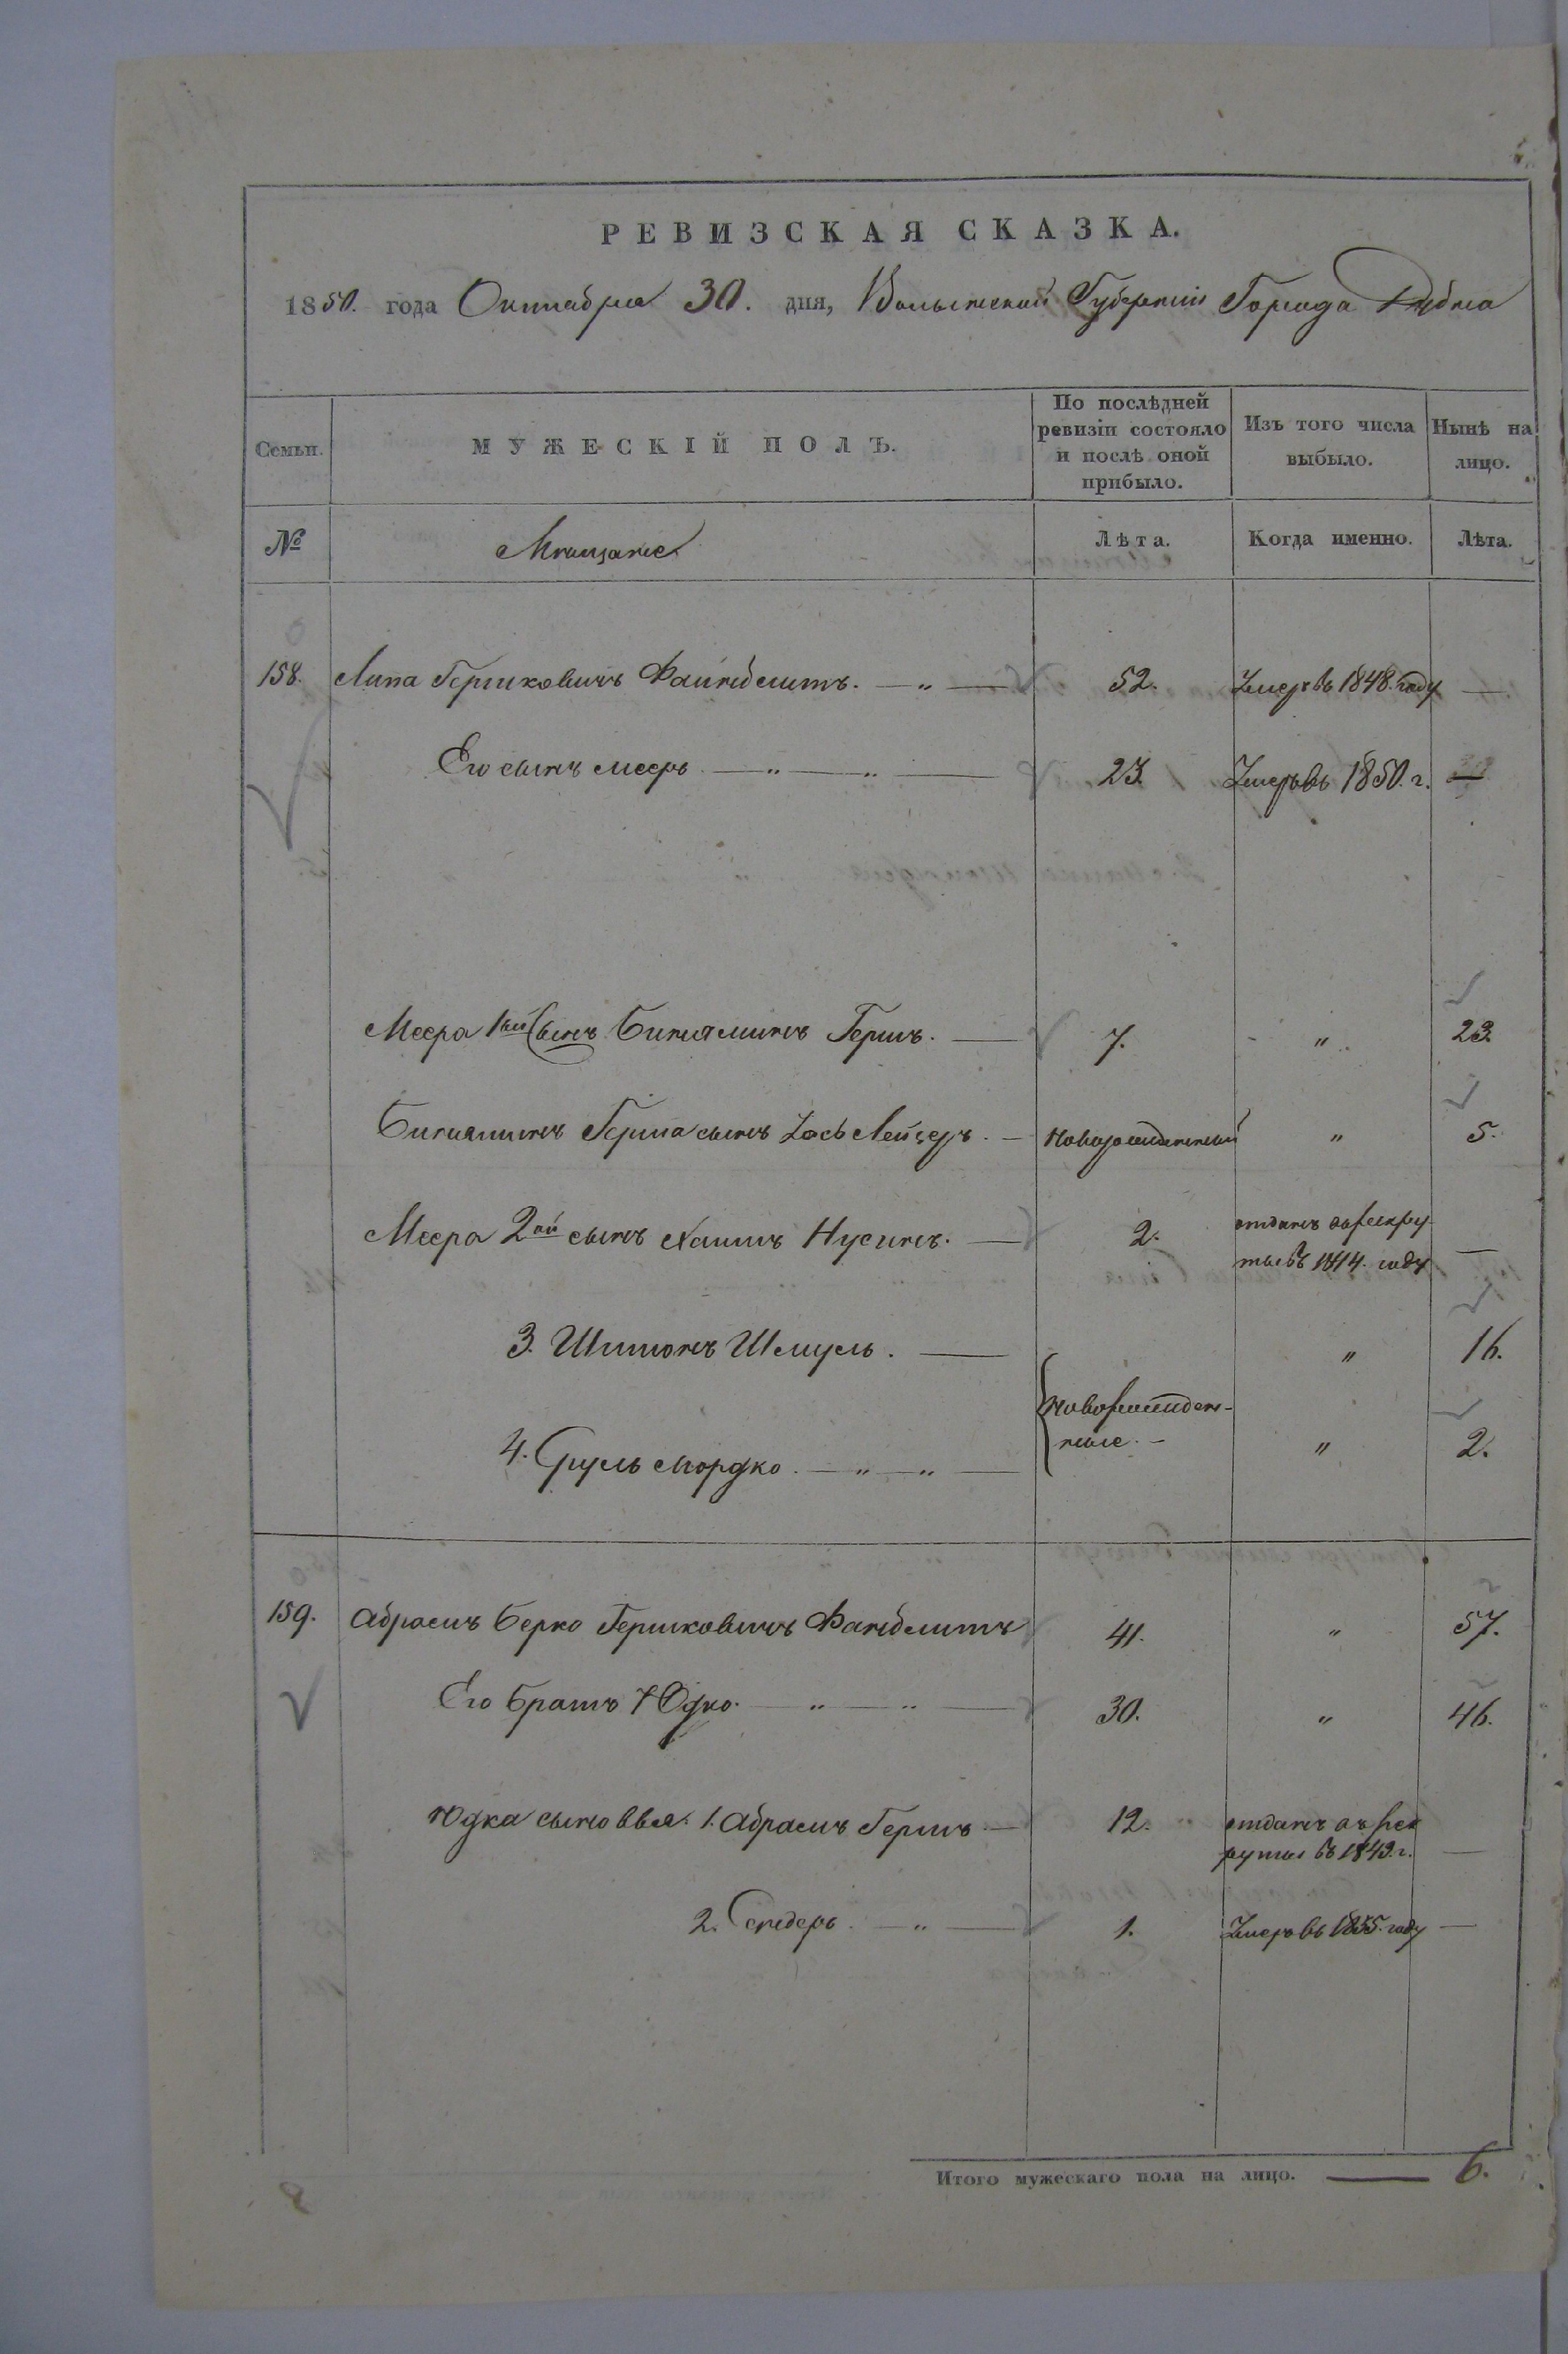 РЕВИЗСКАЯ СКАЗКА.
1850. года Октября 30. дня, Волынской Губернии Города Дубна
Семьи. МУЖЕСКІЙ ПОЛЪ. По послѣдней ревизіи состояло и послѣ оной прибыло. Изъ того числа выбыло. Нынѣ на лицо.
№ Мещане Лѣта. Когда именно. Лѣта.
158. Липа Гершковичъ Файнблитъ. — „ — 52. Умеръ въ 1848. году —
Его сынъ Мееръ — „ — „ — 23. Умеръ въ 1850. г. —
Меера 1ый Сынъ Биниаминъ Гершъ. — 7. „ 23.
Биниаминъ Герша сынъ Лейзеръ. — Новорожденный „ 5.
Меера 2ой сынъ Хаимъ Нусинъ. — 2. отданъ въ рекру-
ты въ 1844. году —
3. Шимонъ Шмуль. — „ 16.
{новорожден-
ные. —
4. Сруль Мордко. — „ — „ — „ 2.
159. Абрамъ Берко Гершковичъ Фанблитъ 41. „ 57.
Его братъ Юдко. — „ — „ — 30. „ 46.
Юдка сыновья: 1. Абрамъ Гершъ — 12. отданъ въ рек
руты въ 1849. г. —
2. Сендеръ. — „ — 1. Умеръ въ 1835. году —
Итого мужескаго пола на лицо. — 6.